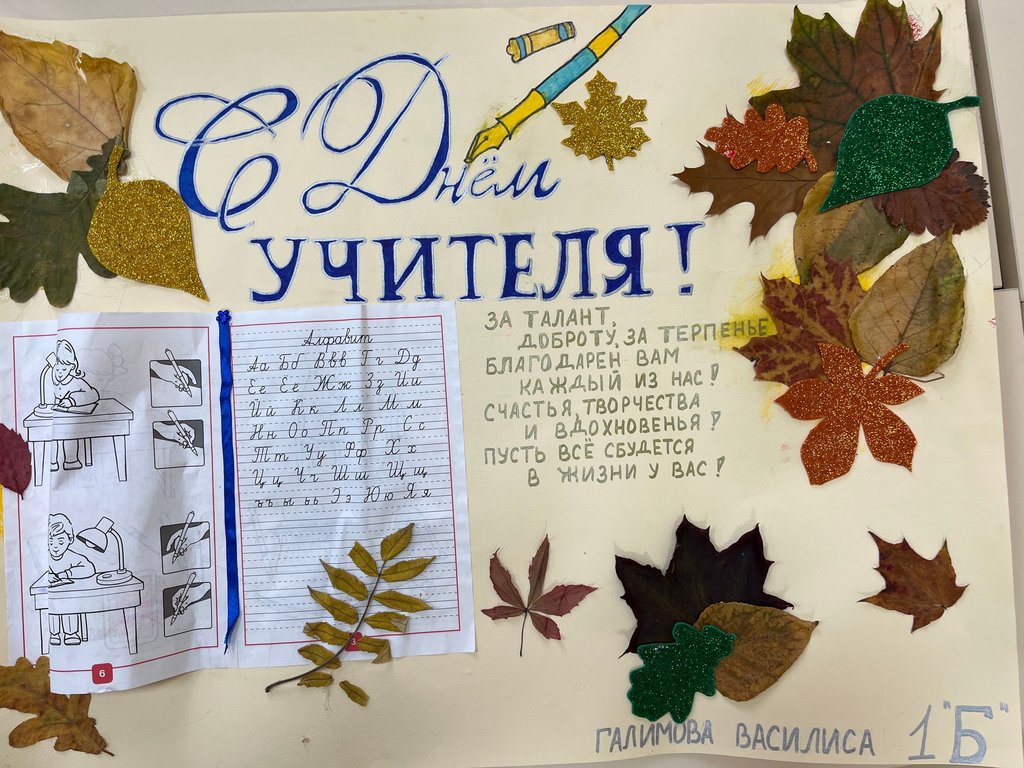 С Днём
УЧИТЕЛЯ!
ЗА ТАЛАНТ,
ДОБРОТУ, ЗА ТЕРПЕНЬЕ
БЛАГОДАРЕН ВАМ
КАЖДЫЙ ИЗ НАС!
СЧАСТЬЯ, ТВОРЧЕСТВА
И ВДОХНОВЕНЬЯ!
ПУСТЬ ВСЁ СБУДЕТСЯ
В ЖИЗНИ У ВАС!
Алфавит
Аа Бб Ввв Гг Дд
Ее Ёе Жж Зз Ии
Йй Кк Лл Мм
Нн Оо Пп Рр Сс
Тт Уу Фф Хх
Цц Чч Шш Щщ
ъъ ы ьь Ээ Юю Яя
6
3
ГАЛИМОВА ВАСИЛИСА 1"Б"